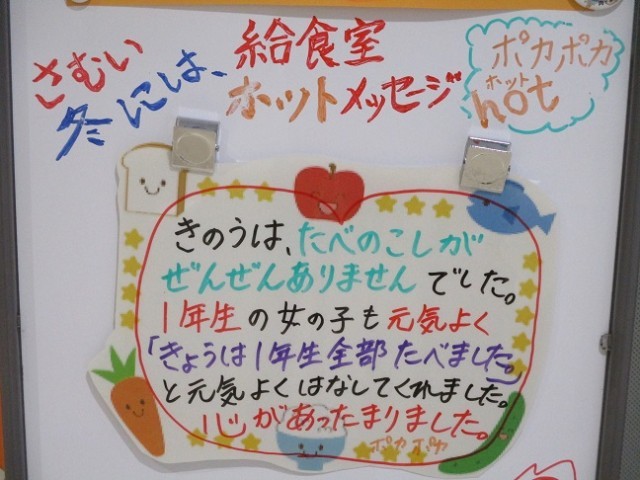 さむい
冬には、
給食室
ホットメッセージ
ポカポカ
ホット
hot
きのうは、たべのこしが
ぜんぜんありませんでした。
1年生の女の子も元気よく
「きょうは1年生全部たべました。」
と元気よくはなしてくれました。
心があったまりました。
ポカポカ